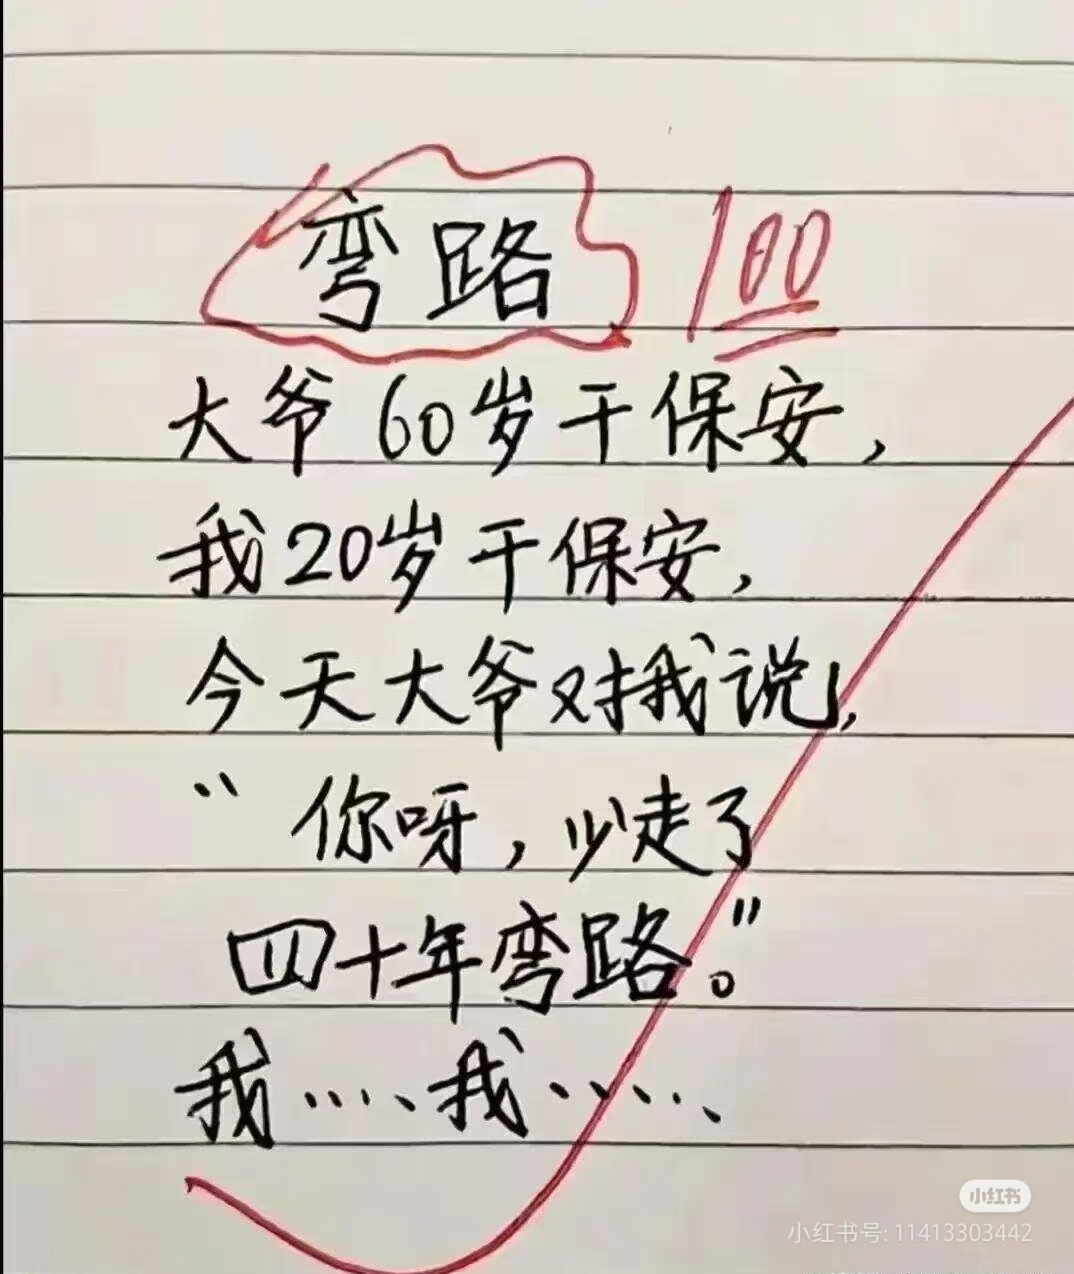 弯路 100
大爷60岁干保安,
我20岁干保安,
今天大爷对我说,
“你呀,少走了
四十年弯路。”
我……我……
小红书
小红书号: 11413303442